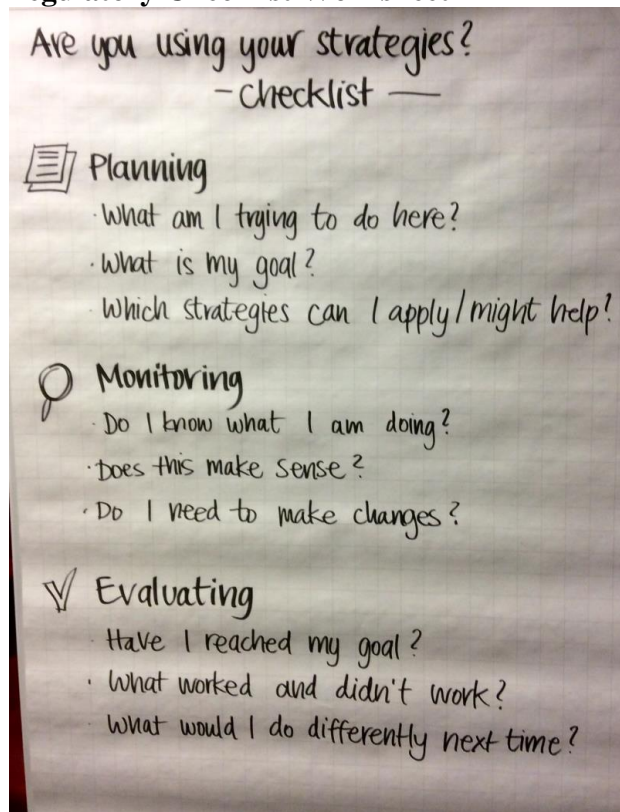 Are you using your strategies?
- Checklist —
Planning
· What am I trying to do here?
· What is my goal?
Which strategies can I apply/might help?
Monitoring
· Do I know what I am doing?
· Does this make sense?
· Do I need to make changes?
Evaluating
· Have I reached my goal?
· What worked and didn't work?
· What would I do differently next time?